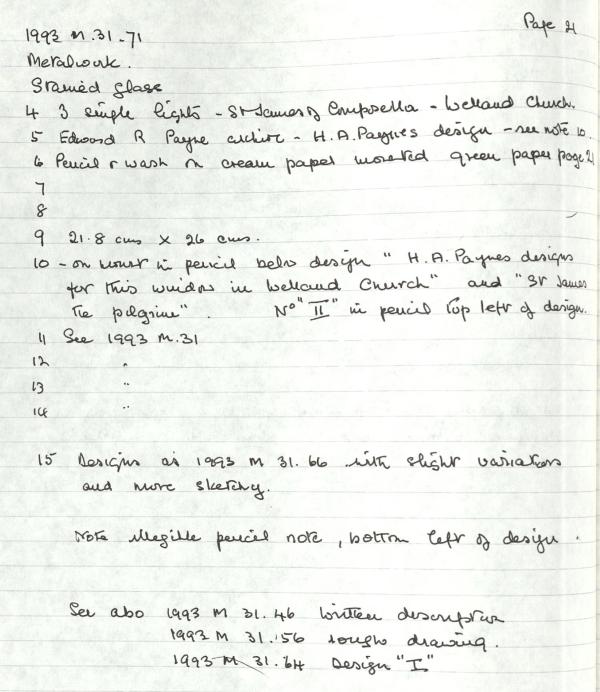 Page 21
1993 M.31.71
Metalwork.
Stained glass
4 3 single lights - St James of Compostella - Welland Church.
5 Edward R Payne archive - H.A.Paynes design - see note 10.
6 Pencil & wash on cream paper mounted green paper page 21
7
8
9 21.8 cms X 26 cms.
10 - on mount in pencil below design " H.A. Paynes designs
for this window in Welland Church" and "St James
the pilgrim". No "II" in pencil top left of design.
11 See 1993 M.31
12 "
13 "
14 "
15 Designs as 1993 M 31.66 with slight variations
and more sketchy.
Note illegible pencil note, bottom left of design.
See also 1993 M 31.46 written description
1993 M 31.56 rough drawing.
1993 M 31.64 Design "I"